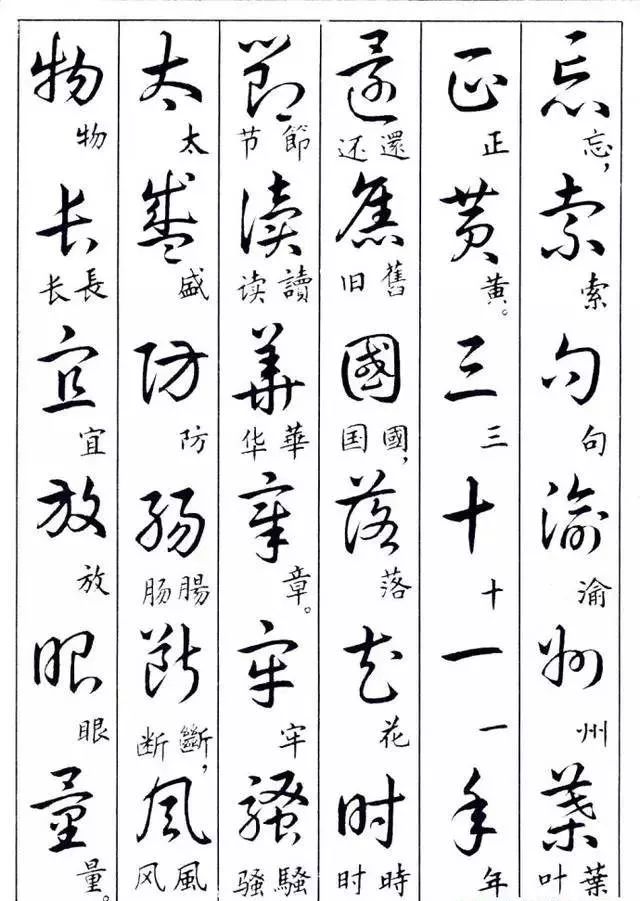 忘索句渝州葉
忘,索句州渝叶葉
正黄三十一年
正黄。三十一年
還舊國落花时
还還旧舊国國,落花时時
節读華章牢騷
节節读讀华華章。牢骚騷
太盛防腸斷風
太盛防肠腸断斷,风風
物长宜放眼量
物长長宜放眼量。